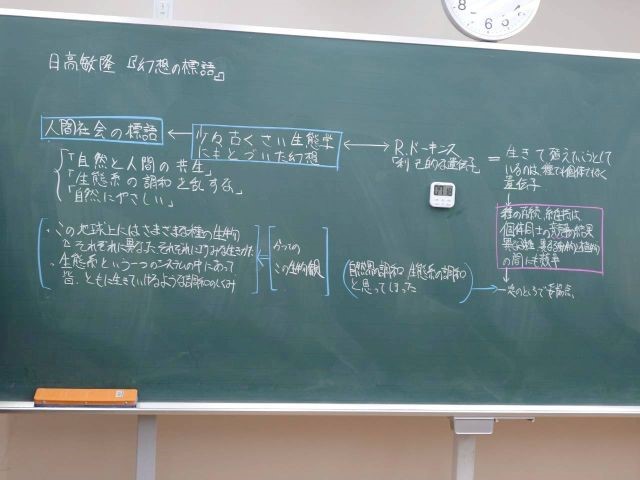 日高敏隆『幻想の標語』
人間社会の標語
「自然と人間の共生」
「生態系の調和を乱すな」
「自然にやさしい」
少々古くさい生態学
にもとづいた幻想
R.ドーキンス
「利己的な遺伝子」
= 生きて殖えたいうとして
いるのは、種でも個体でもなく
遺伝子
種の存続、維持は
個体同士の競争の結果
異なる種
の間にも競争
一定のところで妥協点、
・この地球上にはさまざまな種の生物が
それぞれに異なったそれぞれに巧みな生き方
・生態系という一つのシステムの中にあって
皆、ともに生きていけるような調和のしくみ
かつての
この生物観
自然界の調和 生態系の調和
と思ってしまった
8
7
6
5
4